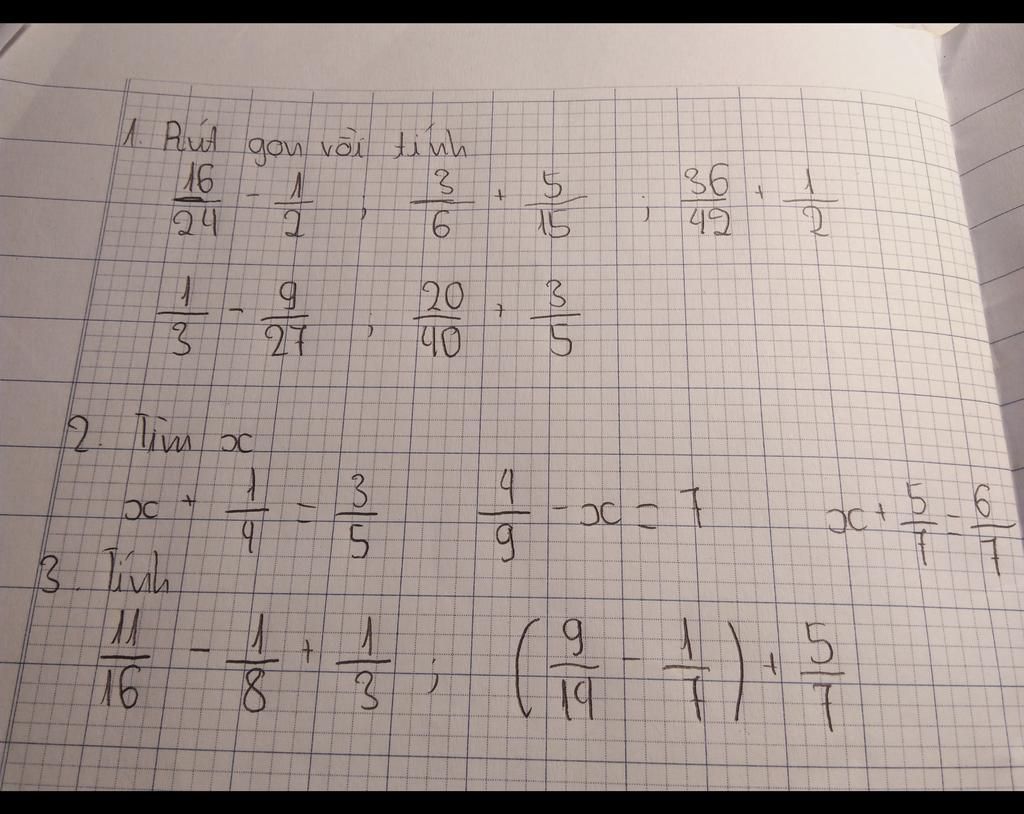 1. Rút gọn rồi tính
16/24 - 1/2 ; 3/6 + 5/15 ; 36/42 + 1/2
1/3 - 9/27 ; 20/40 + 3/5
2. Tìm x
x + 1/4 = 3/5 4/9 - x = 7 x + 5/7 = 6/7
3. Tính
11/16 - 1/8 + 1/3 ; (9/14 - 1/7) + 5/7